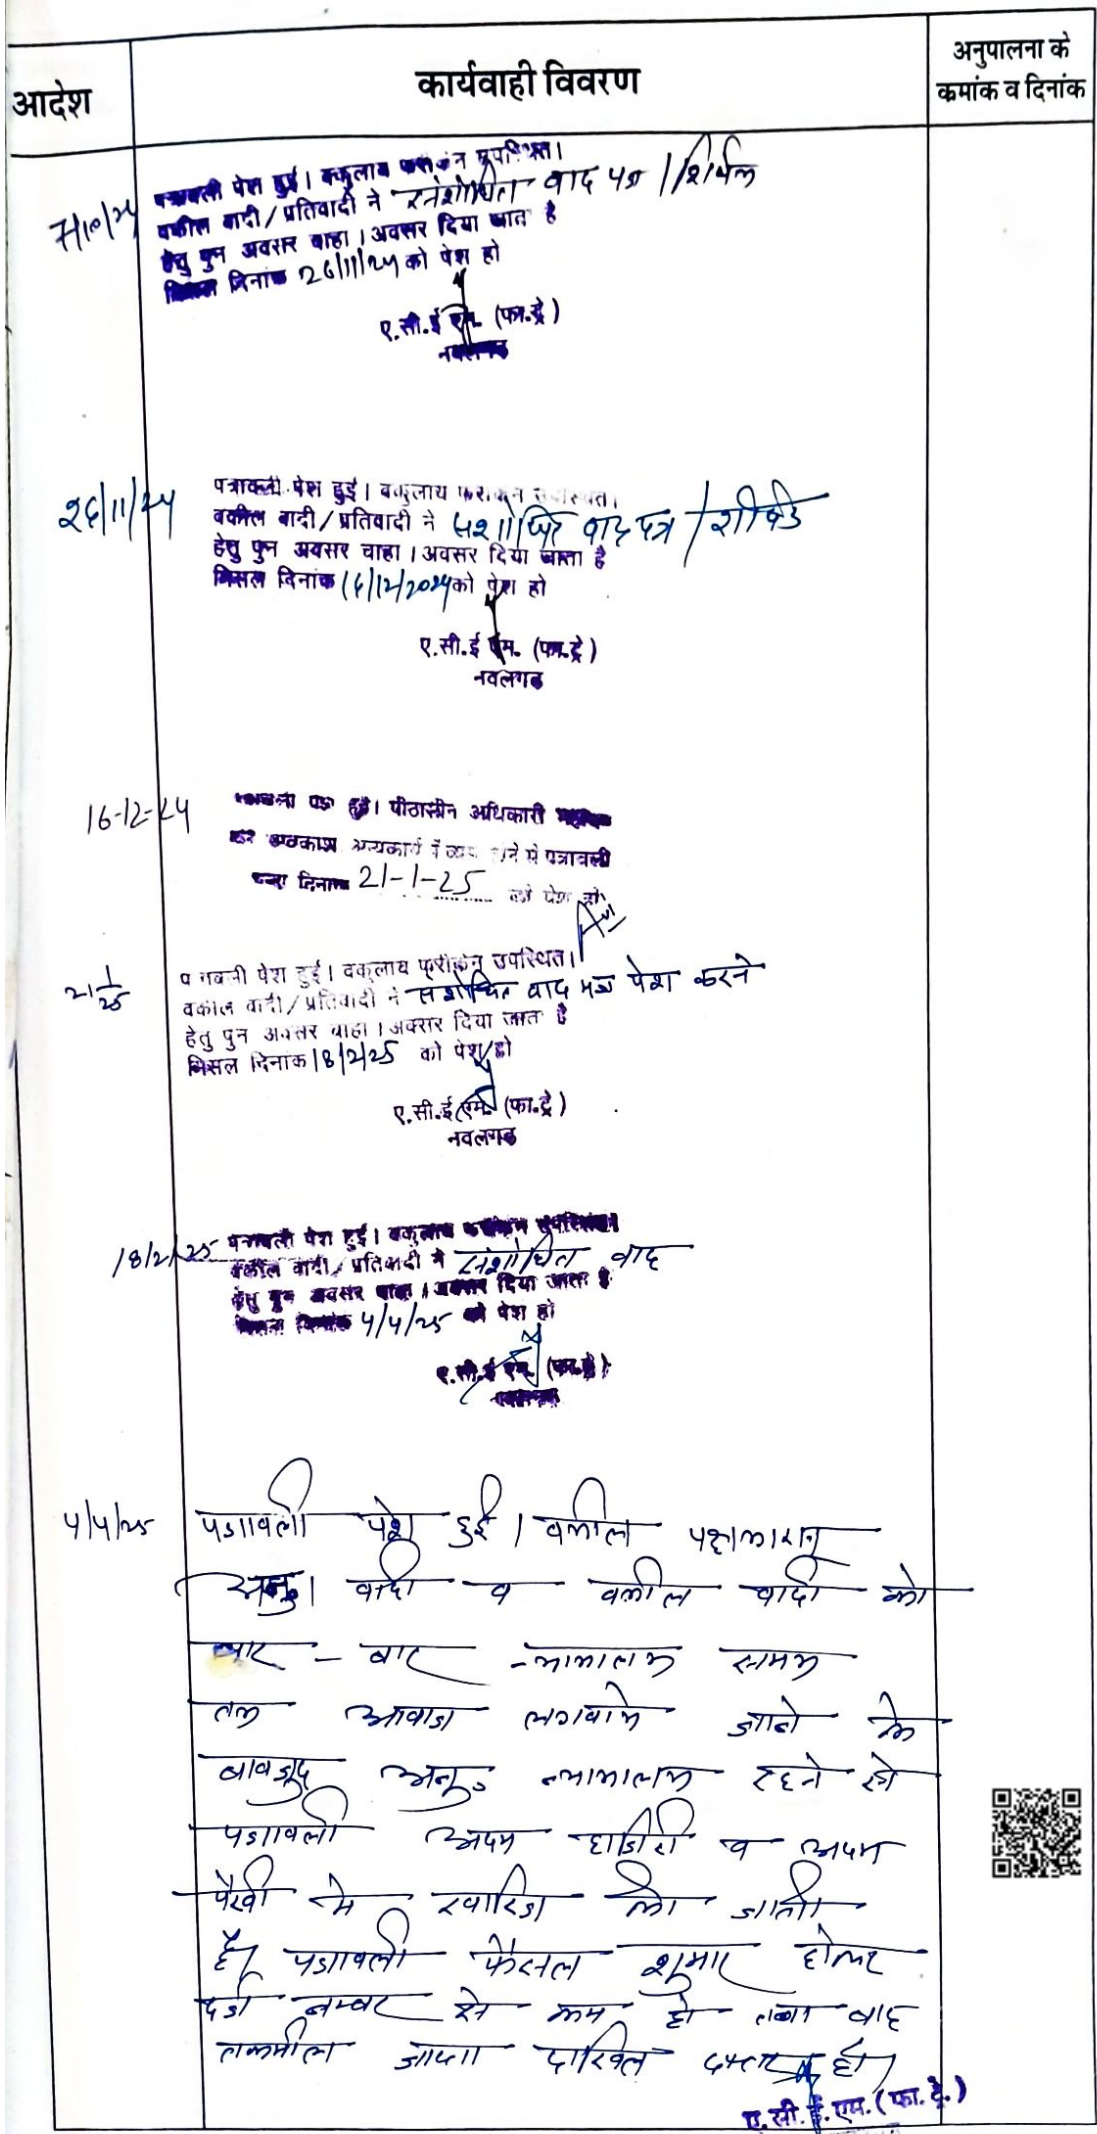 आदेश
कार्यवाही विवरण
अनुपालना के
कमांक व दिनांक
7/10/24
पत्रावली पेश हुई। वकुलाय फरीकेन उपस्थित।
वकील वादी/प्रतिवादी ने संशोधित वाद पत्र / शिर्षक
हेतु पुन अवसर चाहा। अवसर दिया जाता है
मिसल दिनांक 26/11/24 को पेश हो
ए.सी.ई एम. (फा.ट्रे)
नवलगढ
26/11/24
पत्रावली पेश हुई। वकुलाय फरीकेन उपस्थित।
वकील वादी/प्रतिवादी ने संशोधित वाद पत्र / शीर्षक
हेतु पुन अवसर चाहा। अवसर दिया जाता है
मिसल दिनांक 16/12/2024 को पेश हो
ए.सी.ई एम. (फा.ट्रे)
नवलगढ
16-12-24
पत्रावली पेश हुई। पीठासीन अधिकारी
अवकाश अन्यकार्य में व्यस्त होने से पत्रावली
दिनांक 21-1-25 को पेश हो
21/1/25
पत्रावली पेश हुई। वकुलाय फरीकेन उपस्थित।
वकील वादी/प्रतिवादी ने संशोधित वाद पत्र पेश करने
हेतु पुन अवसर चाहा। अवसर दिया जाता है
मिसल दिनांक 18/2/25 को पेश हो
ए.सी.ई एम. (फा.ट्रे)
नवलगढ
18/2/25
पत्रावली पेश हुई। वकुलाय फरीकेन उपस्थित।
वकील वादी/प्रतिवादी ने संशोधित वाद
हेतु पुन अवसर चाहा। अवसर दिया जाता है
मिसल दिनांक 4/4/25 को पेश हो
ए.सी.ई एम. (फा.ट्रे)
नवलगढ
4/4/25
पत्रावली पेश हुई। वकील पक्षकारान्
अनु०। वादी व वकील वादी को
बार - बार न्यायालय समय
तक आवाज लगवाये जाने के
बावजूद अनु० न्यायालय रहने से
पत्रावली अदम हाजिरी व अदम
पैरवी मे खारिज की जाती
है। पत्रावली फैसल शुमार होकर
दर्ज नम्बर से कम हो तथा बाद
तकमील जाप्ता दाखिल दफ्तर हो।
ए.सी.ई.एम.(फा.ट्रे.)